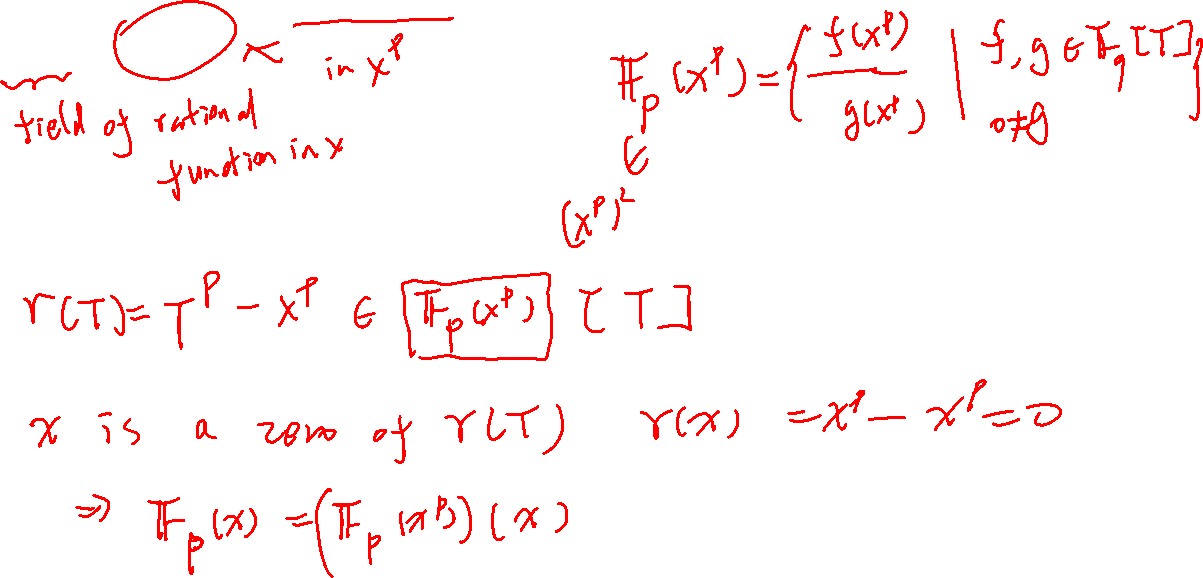 in x^p
field of rational
function in x
F_p (x^p) = { f(x^p) / g(x^p) | f, g ∈ F_q [T] 0 ≠ g }
∈
(x^p)^2
r(T) = T^p - x^p ∈ F_p (x^p) [T]
x is a zero of r(T) r(x) = x^p - x^p = 0
⇒ F_p (x) = (F_p (x^p)) (x)